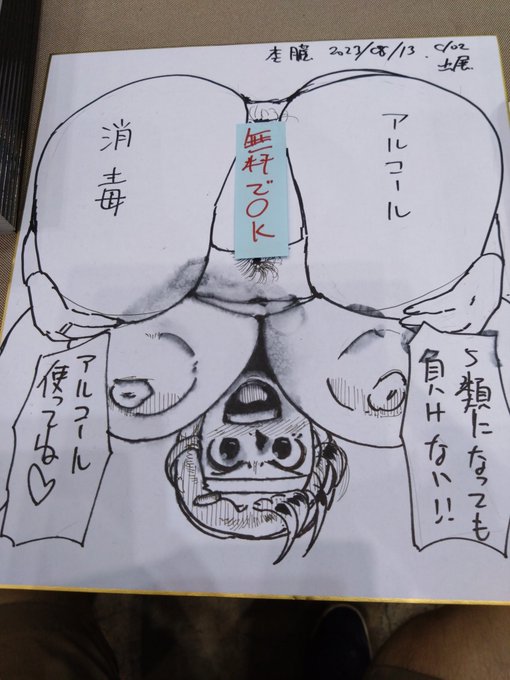 2023/08/13
アルコール
消毒
無料でOK
5類になっても
負けない!!
アルコール
使ってね♡